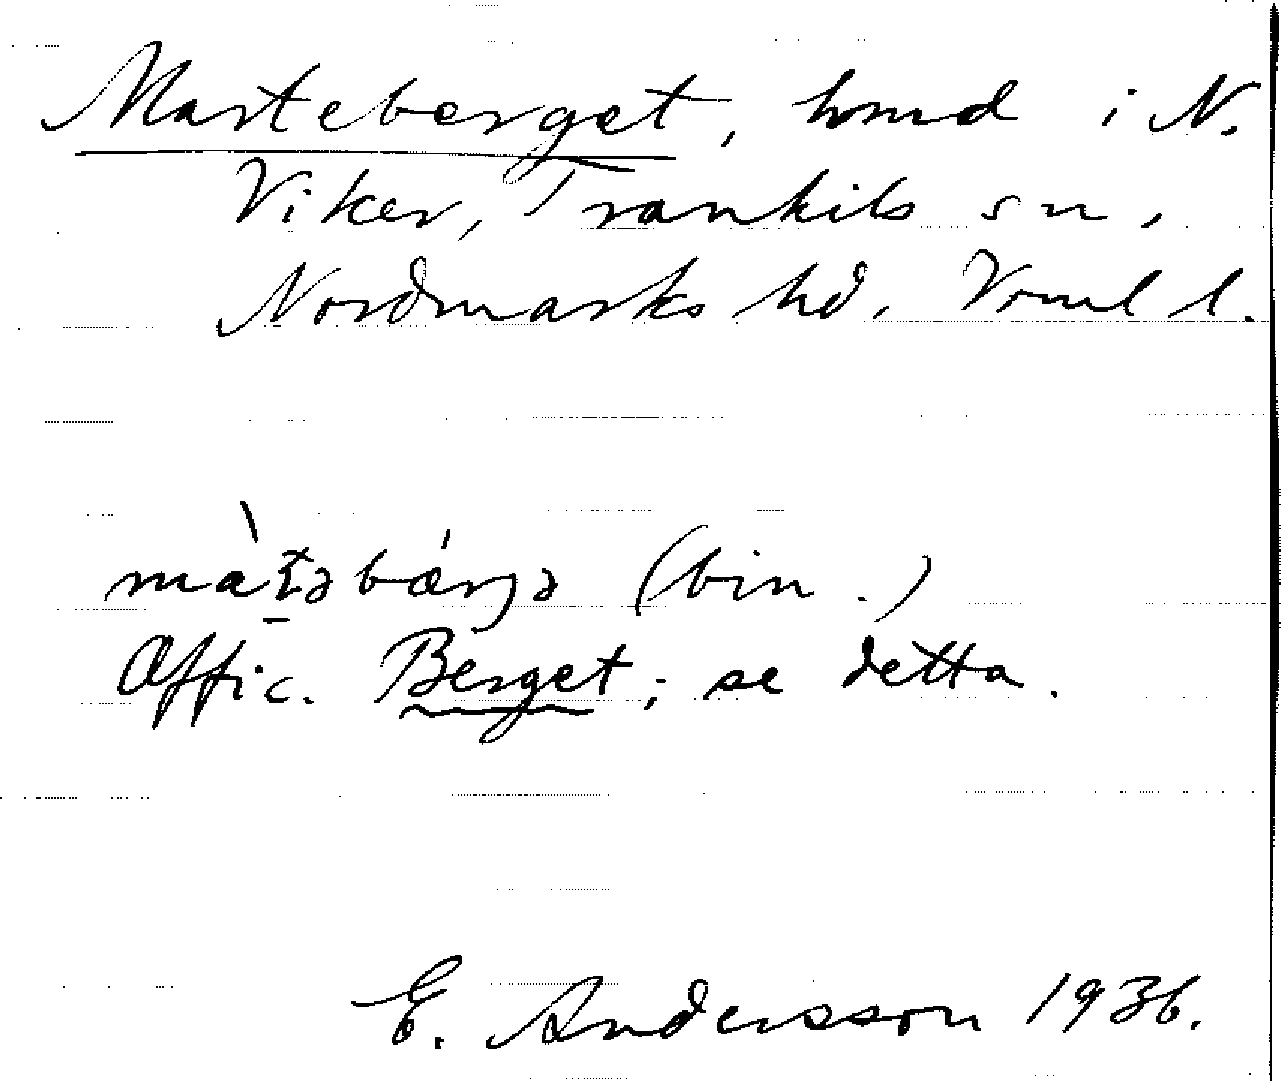 Marteberget, hmd i N.
Viker, Trankils sn,
Nordmarks hd, Vrml l.
màt̠əbærjə (bin.)
Offic. Berget; se detta.
E. Andersson 1936.